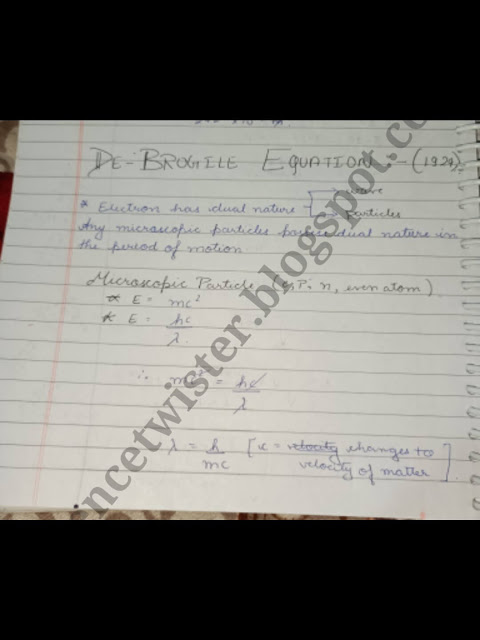 DE-BROGILE EQUATION :- (1924)
* Electron has dual nature wave
Particles
Any microscopic particles dual nature in
the period of motion
Microscopic Particle n, even atom)
* E = mc²
* E = hc
λ
∴ mc² = hc
λ
λ = h [c = velocity changes to
mc velocity of matter]
ncetwister.blogspot.co